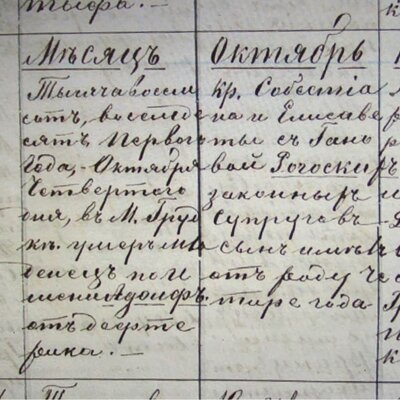 тыфа. —
Мѣсяцъ
Тысяча восемь
сотъ, восемьде
сятъ перваго
года, - Октября
Четвертаго
дня, въ М. Груд
кѣ умеръ мла
денецъ по и
мени Адольфъ.
отъ дифте
рика. —
Октябрь
кр. Собестiа
на и Елисаве
ты съ Гано
вой Рогоскихъ
законныхъ
Супруговъ
сынъ имѣя
отъ роду че
тыре года